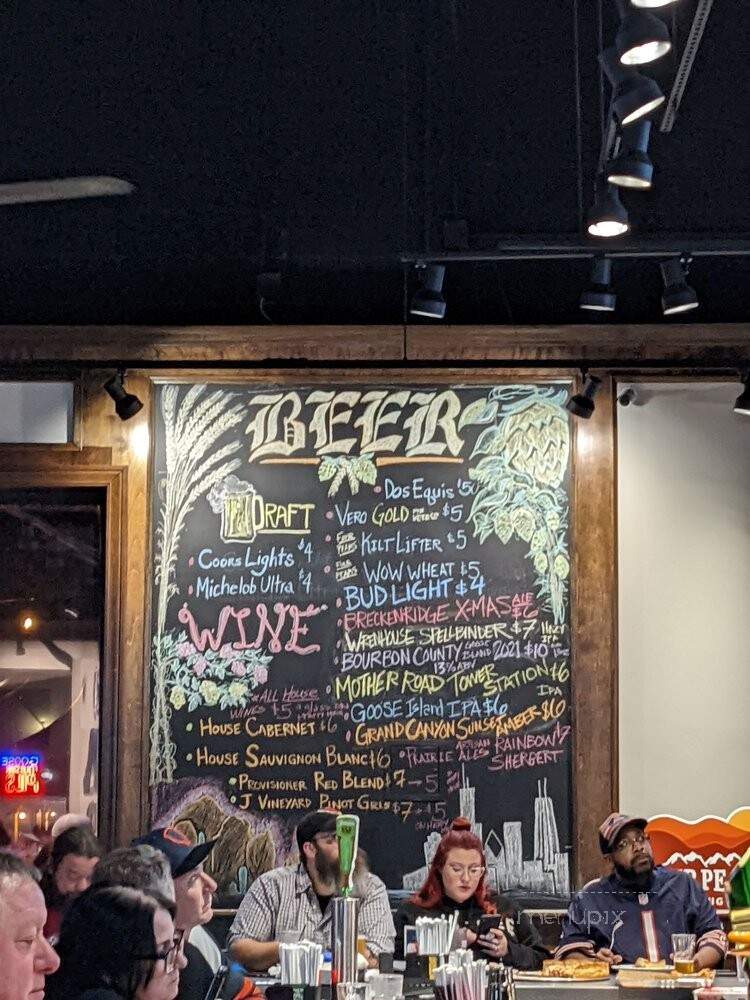 BEER
DRAFT
Coors Lights $4
Michelob Ultra $4
Dos Equis $5
Vero GOLD $5
Four Peaks KILT LIFTER $5
Four Peaks WOW WHEAT $5
BUD LIGHT $4
BRECKENRIDGE X-MAS ALE $6
WRENHOUSE SPELLBINDER $7 HAZY IPA
BOURBON COUNTY GOOSE ISLAND 2021 $10
13% ABV
MOTHER ROAD TOWER STATION $6
IPA
GOOSE Island IPA $6
GRAND CANYON SUNSET AMBER $6
PRAIRIE ARTISAN ALES RAINBOW $7
SHERBERT
WINE
*ALL HOUSE
WINES $5
HOUSE CABERNET $6
HOUSE SAUVIGNON BLANC $6
PROVISIONER RED BLEND $7 → 5
J VINEYARD PINOT GRIS $7 → $5
GOOSE
menupix